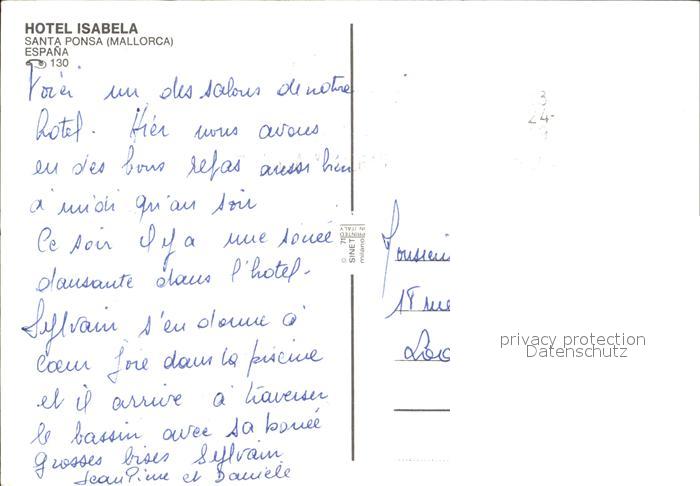 HOTEL ISABELA
SANTA PONSA (MALLORCA)
ESPAÑA
130
Voici un des salons de notre
hotel. Hier nous avons
eu des bons repas aussi bien
à midi qu'au soir
Ce soir il y a une soirée
dansante dans l'hotel.
Sylvain s'en donne à
cœur joie dans la piscine
et il arrive à traverser
le bassin avec sa bouée
grosses bises Sylvain
et Danièle
SINET
milano
PRINTED
IN ITALY
24-
18 rue
privacy protection
Datenschutz